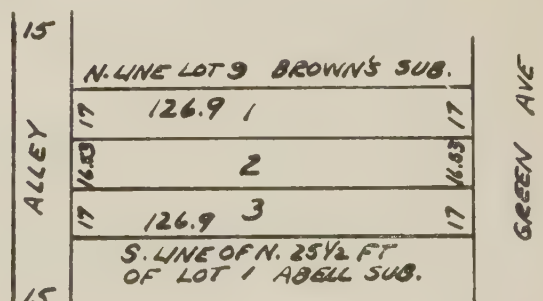 15
N. LINE LOT 9 BROWN'S SUB.
17 126.9 1 17
16.83 2 16.83
17 126.9 3 17
S. LINE OF N. 25 1/2 FT
OF LOT 1 ABELL SUB.
15
ALLEY
GREEN AVE